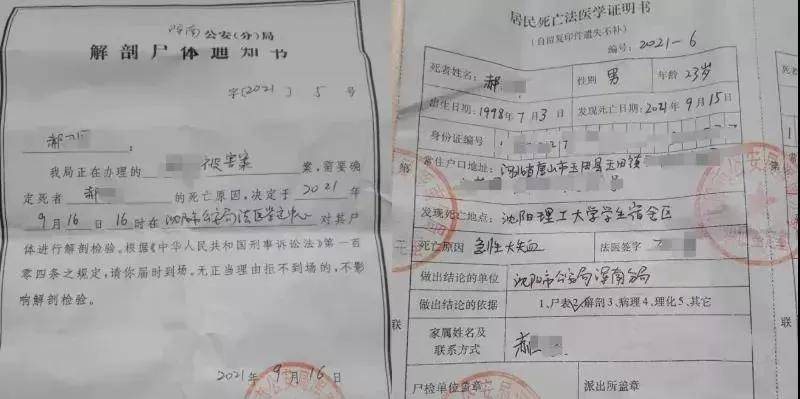 浑南公安(分)局
解剖尸体通知书
字〔2021〕5号
郝
我局正在办理的 被害案 案,需要确
定死者 郝 的死亡原因,决定于 2021 年
9月16日16时在沈阳市公安局法医鉴定中心 对其尸
体进行解剖检验。根据《中华人民共和国刑事诉讼法》第一百
零四条之规定,请你届时到场。无正当理由拒不到场的,不影
响解剖检验。
2021年9月16日
居民死亡法医学证明书
(自留复印件遗失不补)
编号:2021-6
死者姓名: 郝 性别 男 年龄 23岁
出生日期:1998年7月3日 发现死亡日期:2021年9月15日
身份证编号
常住户口地址: 河北省唐山市玉田县玉田镇
发现死亡地点: 沈阳理工大学学生宿舍区
死亡原因 急性大失血 法医签字
做出结论的单位 沈阳市公安局浑南分局
做出结论的依据 1、尸表 2、解剖 3、病理 4、理化 5、其它
家属姓名及
联系方式 郝
尸检单位盖章 派出所盖章
第
联
第
联